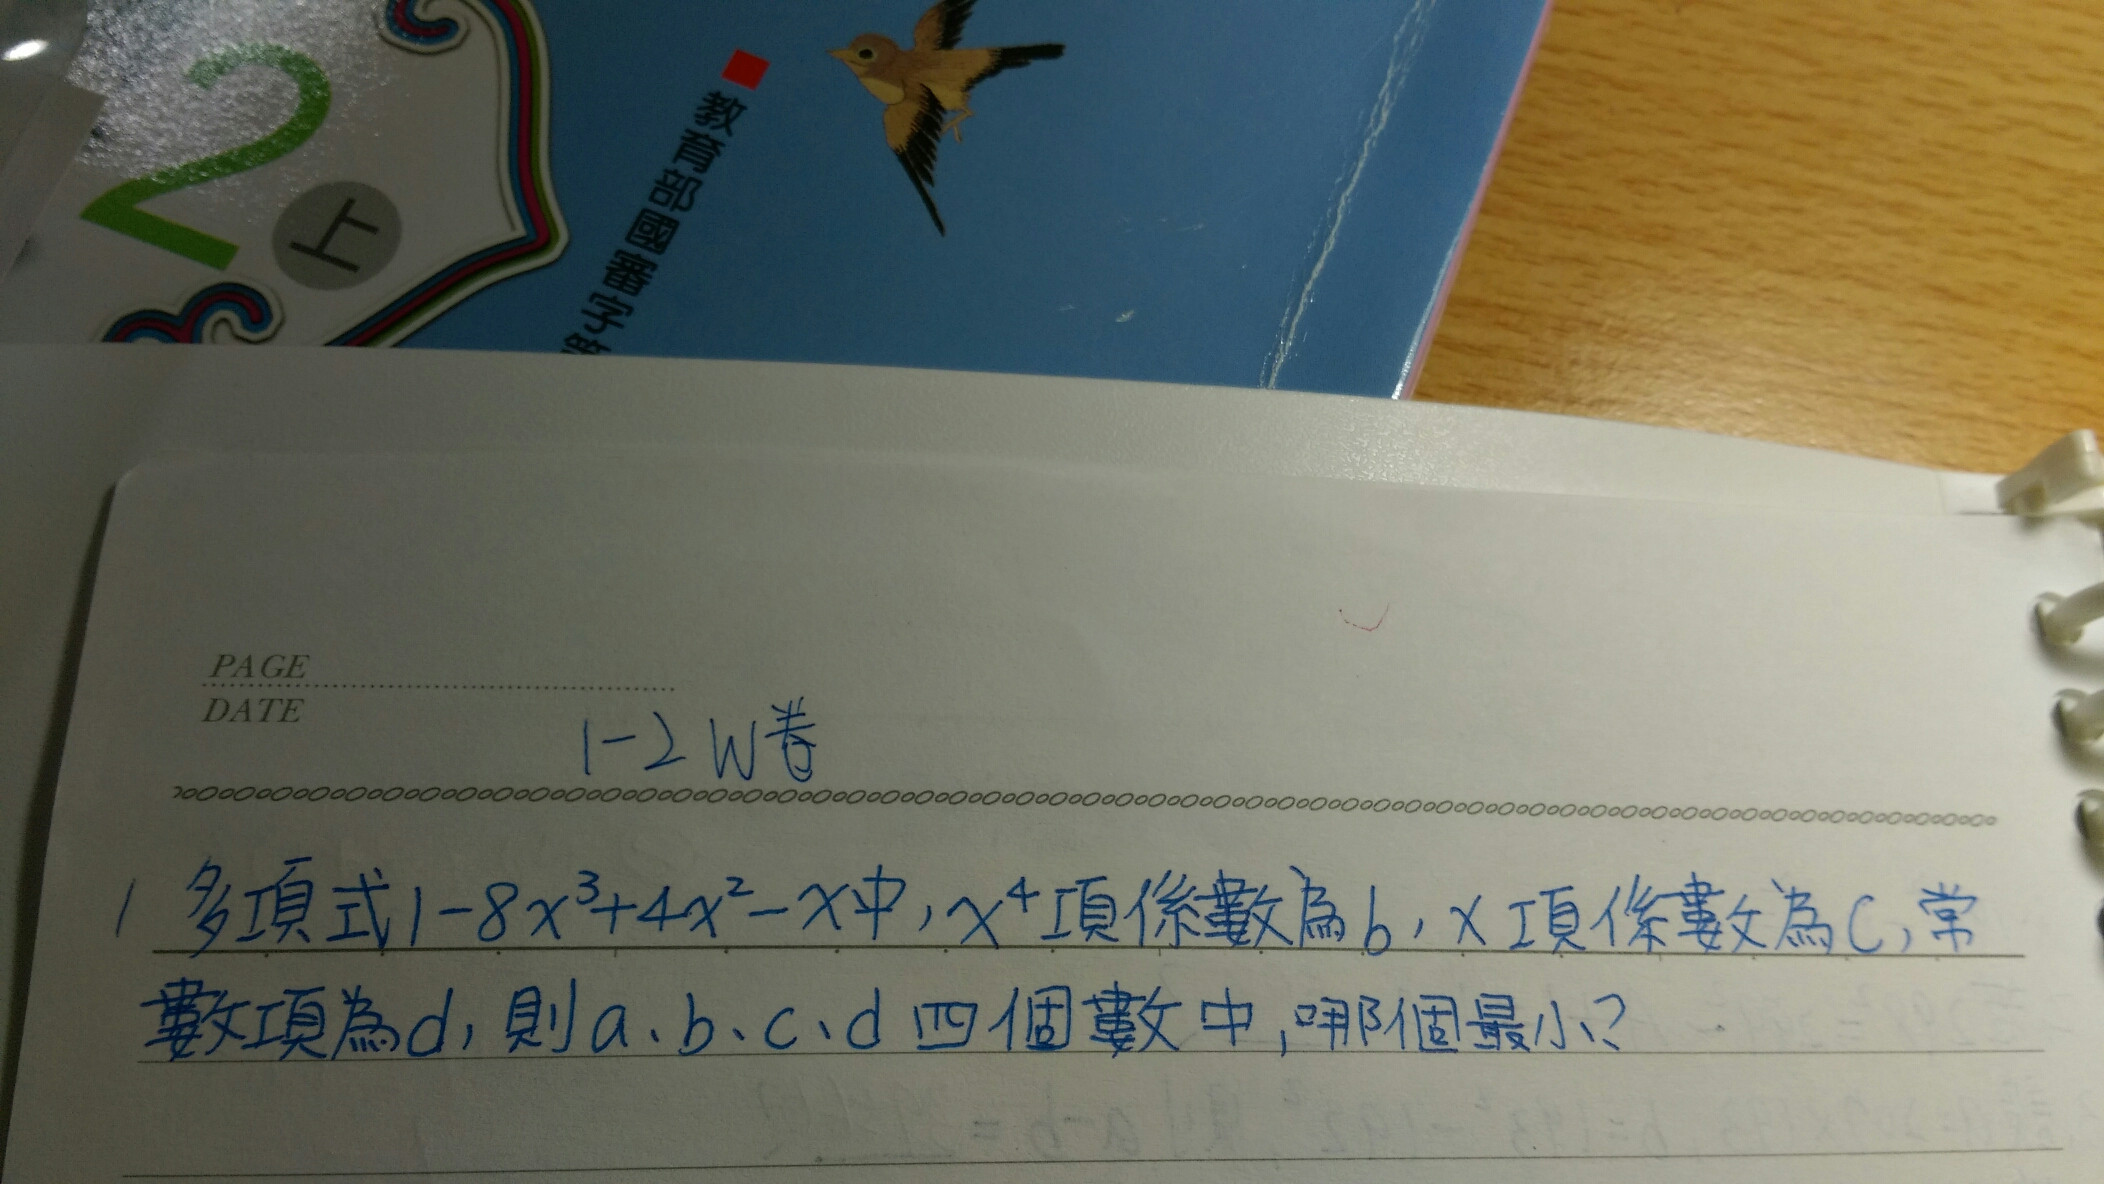 2
上
教育部國審字第
PAGE
DATE
1-2 W卷
1 多項式1-8x³+4x²-x中,x⁴項係數為b,x項係數為c,常
數項為d,則a、b、c、d四個數中,哪個最小?